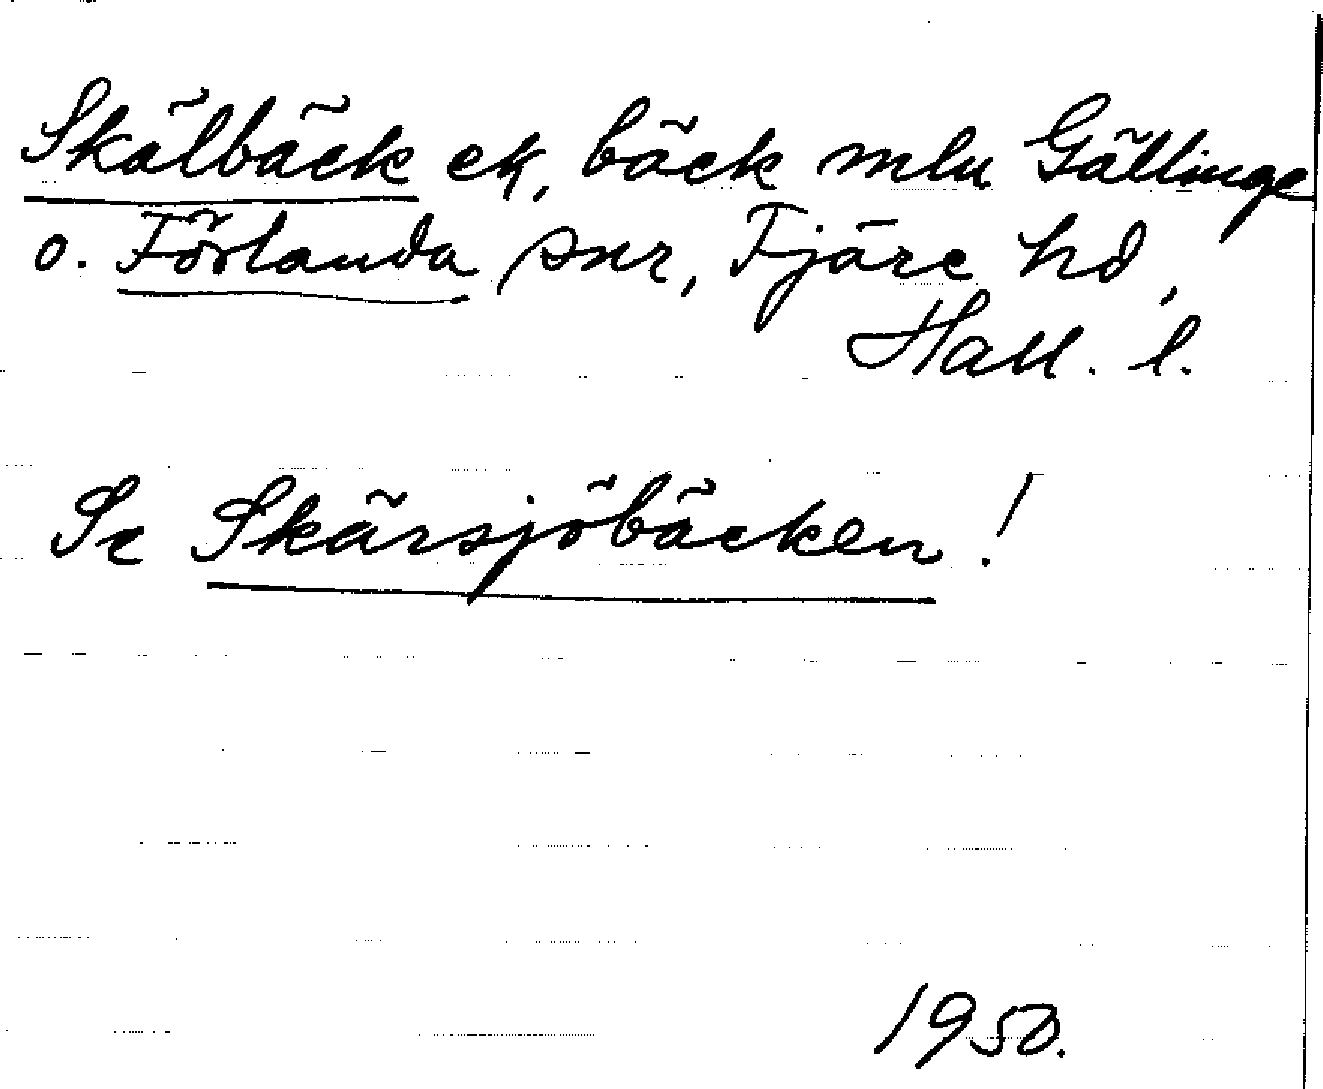 Skälbäck ek, bäck mlu Gällinge
o. Förlanda snr, Fjäre hd,
Hall. l.
Se Skärsjöbäcken!
1950.